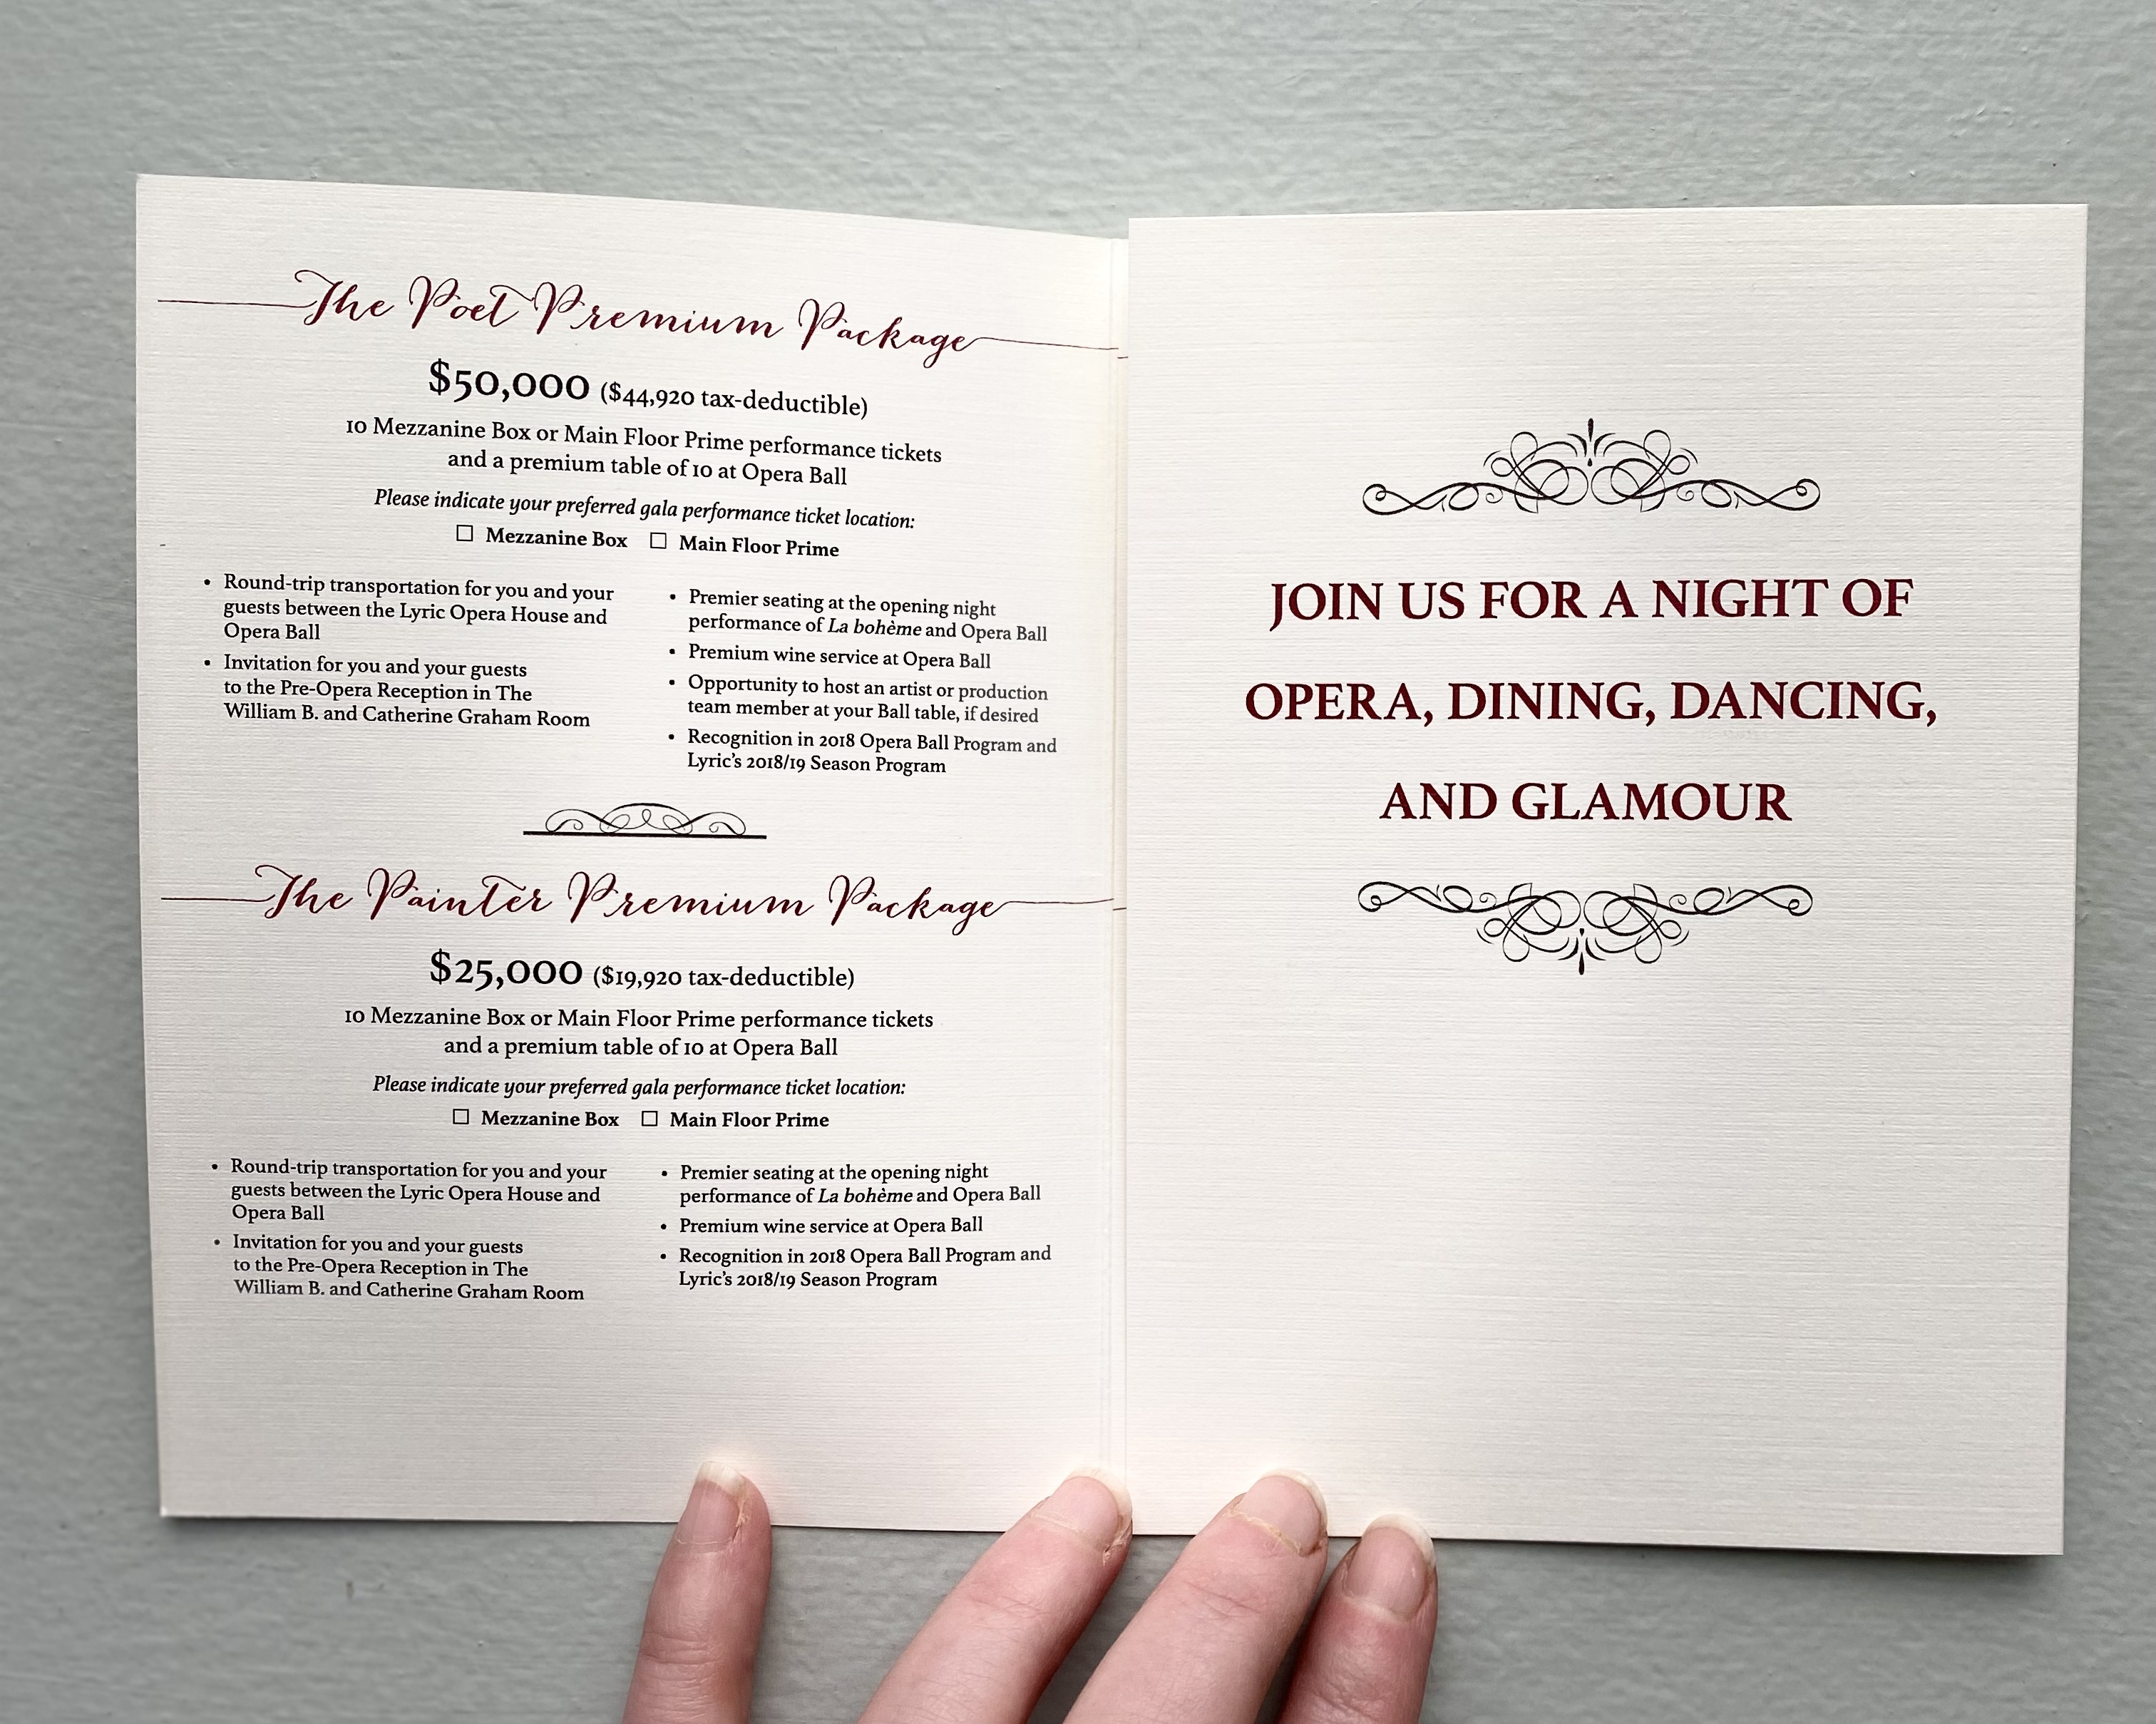 The Poet Premium Package
$50,000 ($44,920 tax-deductible)
10 Mezzanine Box or Main Floor Prime performance tickets
and a premium table of 10 at Opera Ball
Please indicate your preferred gala performance ticket location:
☐ Mezzanine Box ☐ Main Floor Prime
• Round-trip transportation for you and your
guests between the Lyric Opera House and
Opera Ball
• Invitation for you and your guests
to the Pre-Opera Reception in The
William B. and Catherine Graham Room
• Premier seating at the opening night
performance of La bohème and Opera Ball
• Premium wine service at Opera Ball
• Opportunity to host an artist or production
team member at your Ball table, if desired
• Recognition in 2018 Opera Ball Program and
Lyric's 2018/19 Season Program
The Painter Premium Package
$25,000 ($19,920 tax-deductible)
10 Mezzanine Box or Main Floor Prime performance tickets
and a premium table of 10 at Opera Ball
Please indicate your preferred gala performance ticket location:
☐ Mezzanine Box ☐ Main Floor Prime
• Round-trip transportation for you and your
guests between the Lyric Opera House and
Opera Ball
• Invitation for you and your guests
to the Pre-Opera Reception in The
William B. and Catherine Graham Room
• Premier seating at the opening night
performance of La bohème and Opera Ball
• Premium wine service at Opera Ball
• Recognition in 2018 Opera Ball Program and
Lyric's 2018/19 Season Program
JOIN US FOR A NIGHT OF
OPERA, DINING, DANCING,
AND GLAMOUR